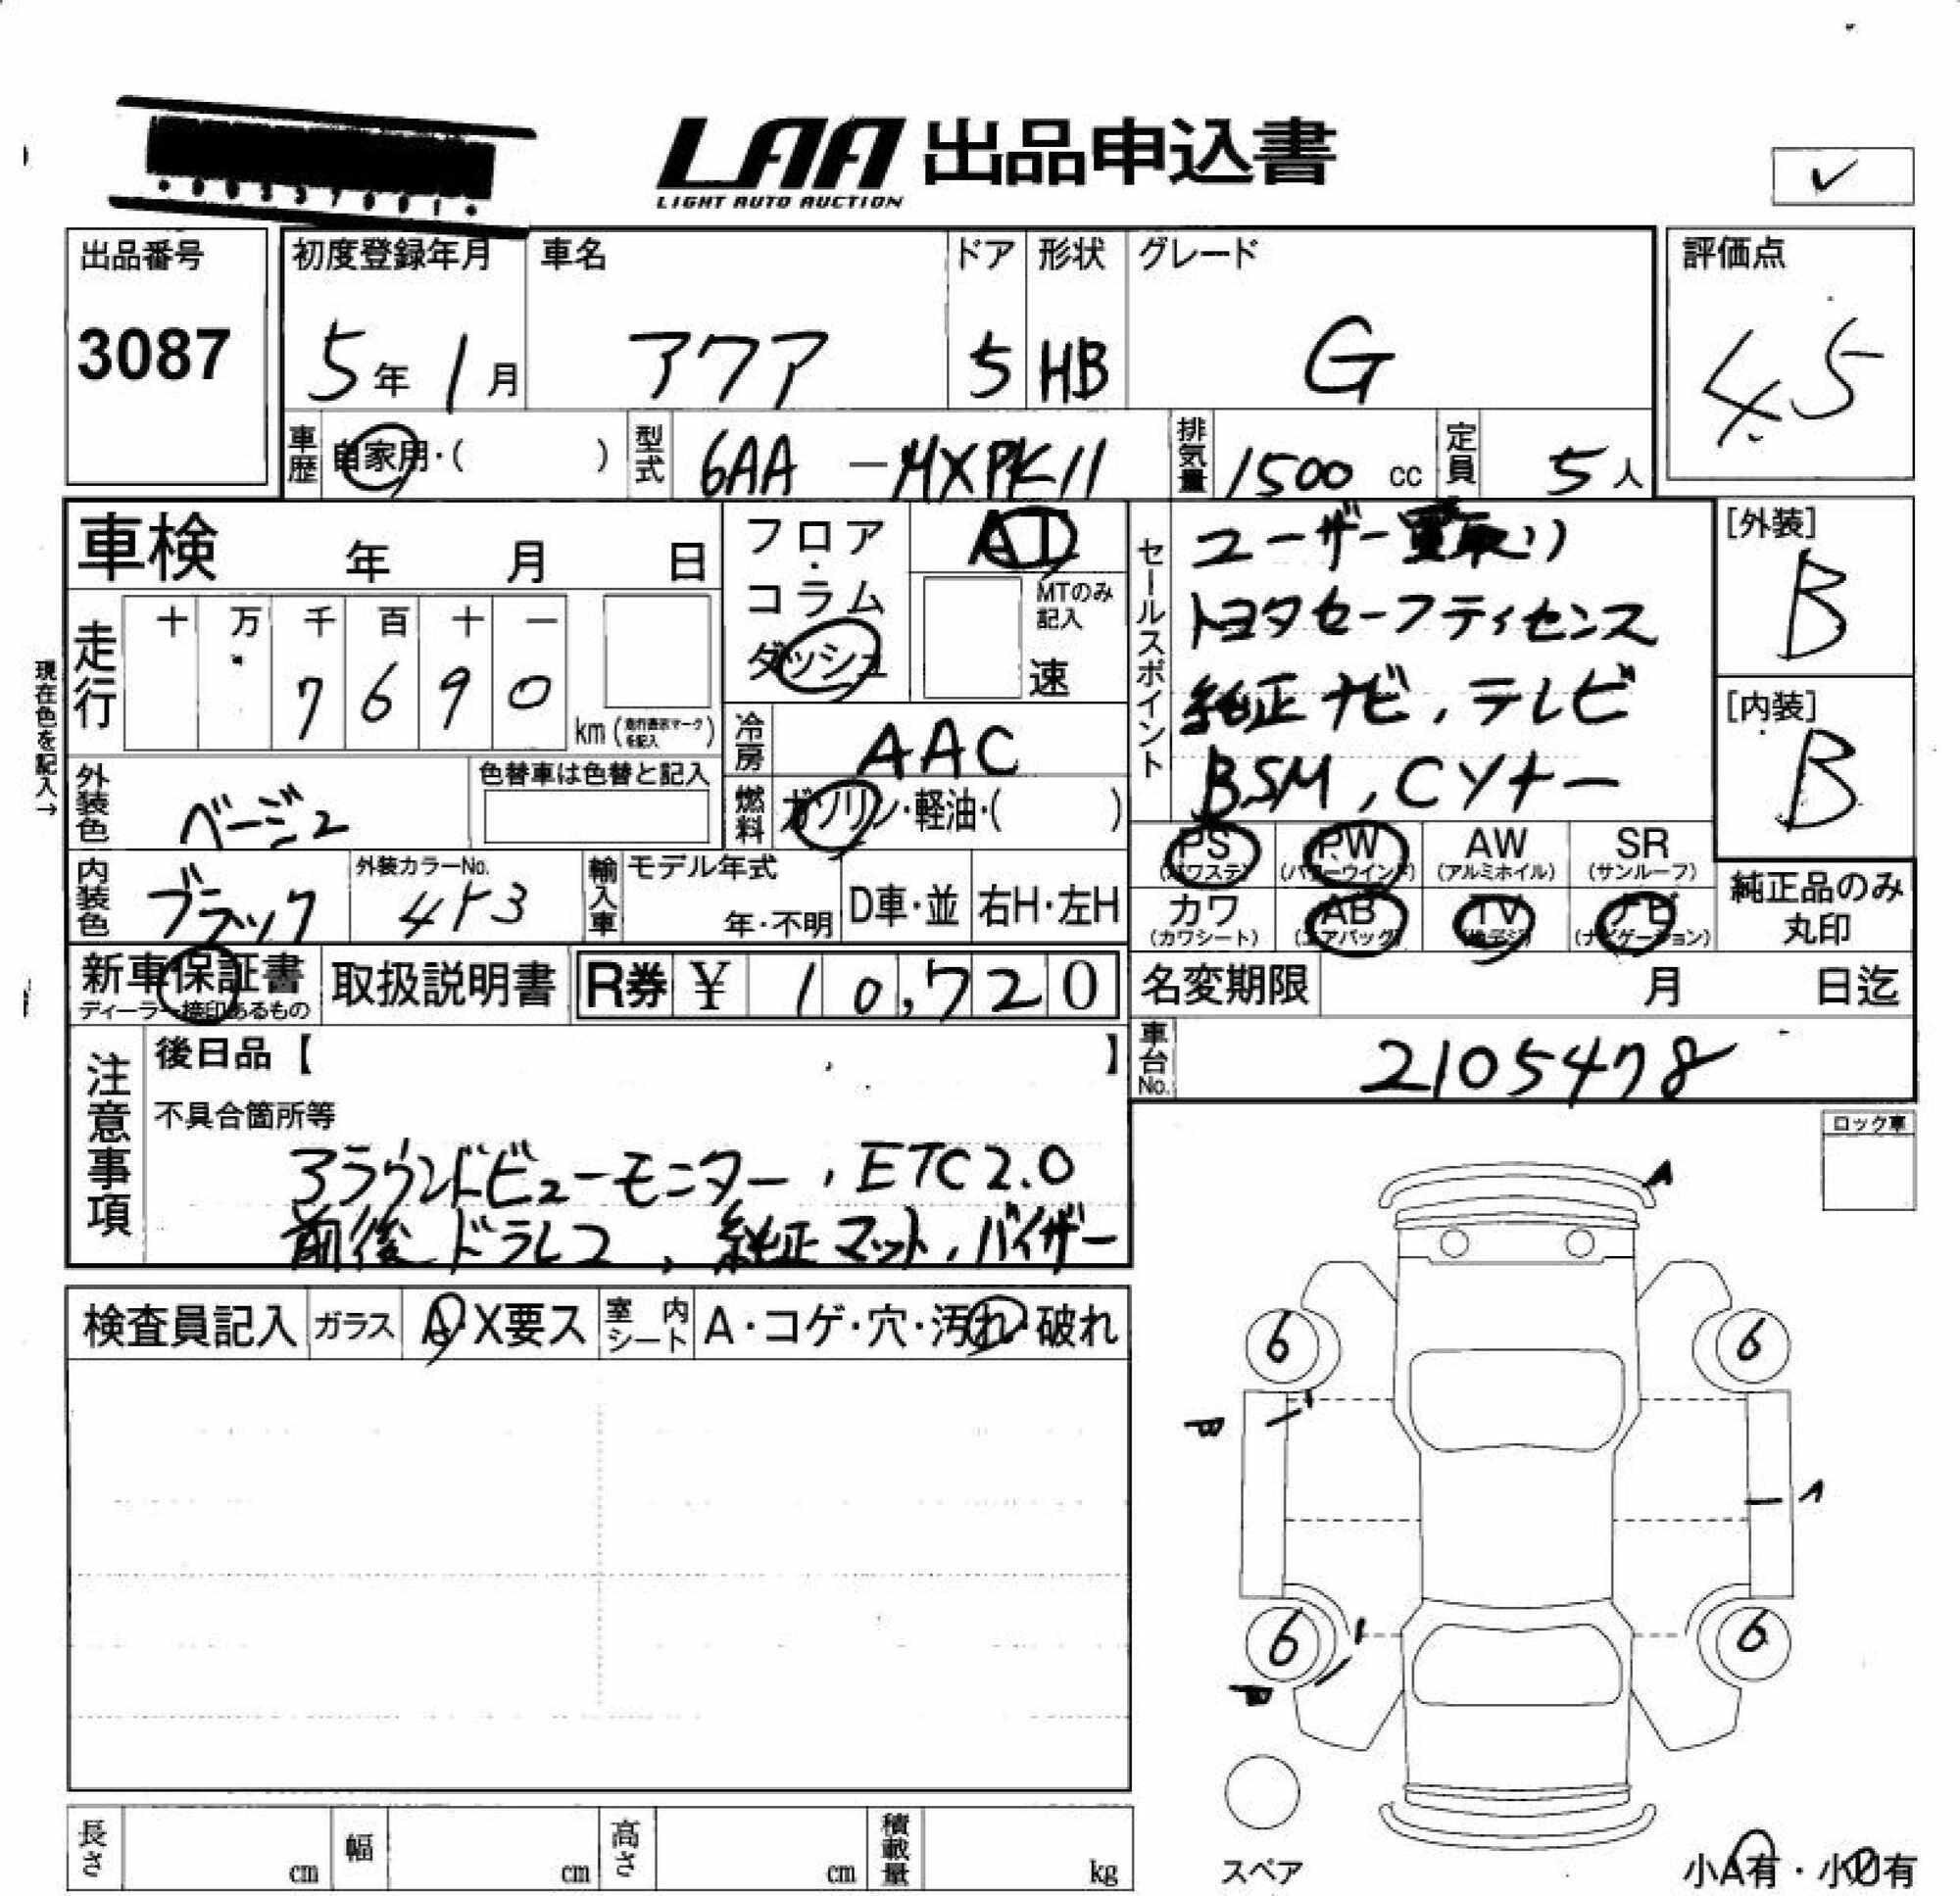 LAA 出品申込書
LIGHT AUTO AUCTION
✓
出品番号
3087
初度登録年月
5年 1月
車名
アクア
ドア
5
形状
HB
グレード
G
評価点
4.5
車歴
自家用・( )
型式
6AA - MXPK11
排気量
1500 cc
定員
5人
車検 年 月 日
走行
十 万 千 百 十 一
7 6 9 0
km (走行表示マークを記入)
現在色を記入→
フロア・コラム
ダッシュ
AT
MTのみ記入
速
冷房
AAC
燃料
ガソリン・軽油・( )
セールスポイント
ユーザー買取り
トヨタセーフティセンス
純正ナビ, テレビ
BSM, Cソナー
[外装]
B
[内装]
B
外装色
ベージュ
色替車は色替と記入
内装色
ブラック
外装カラーNo.
4Y3
輸入車
モデル年式
年・不明
D車・並
右H・左H
PS
(パワステ)
PW
(パワーウインド)
AW
(アルミホイル)
SR
(サンルーフ)
カワ
(カワシート)
AB
(エアバッグ)
TV
(地デジ)
ナビ
(ナビゲーション)
純正品のみ
丸印
新車保証書
ディーラー捺印あるもの
取扱説明書
R券 ¥ 10,720
名変期限 月 日迄
車台No.
2105478
注意事項
後日品【 】
不具合箇所等
アラウンドビューモニター, ETC2.0
前後ドラレコ, 純正マット, バイザー
ロック車
検査員記入
ガラス
A・X要ス
室内シート
A・コゲ・穴・汚れ・破れ
A
6
6
6
6
スペア
小A有・小U有
長さ cm
幅 cm
高さ cm
積載量 kg